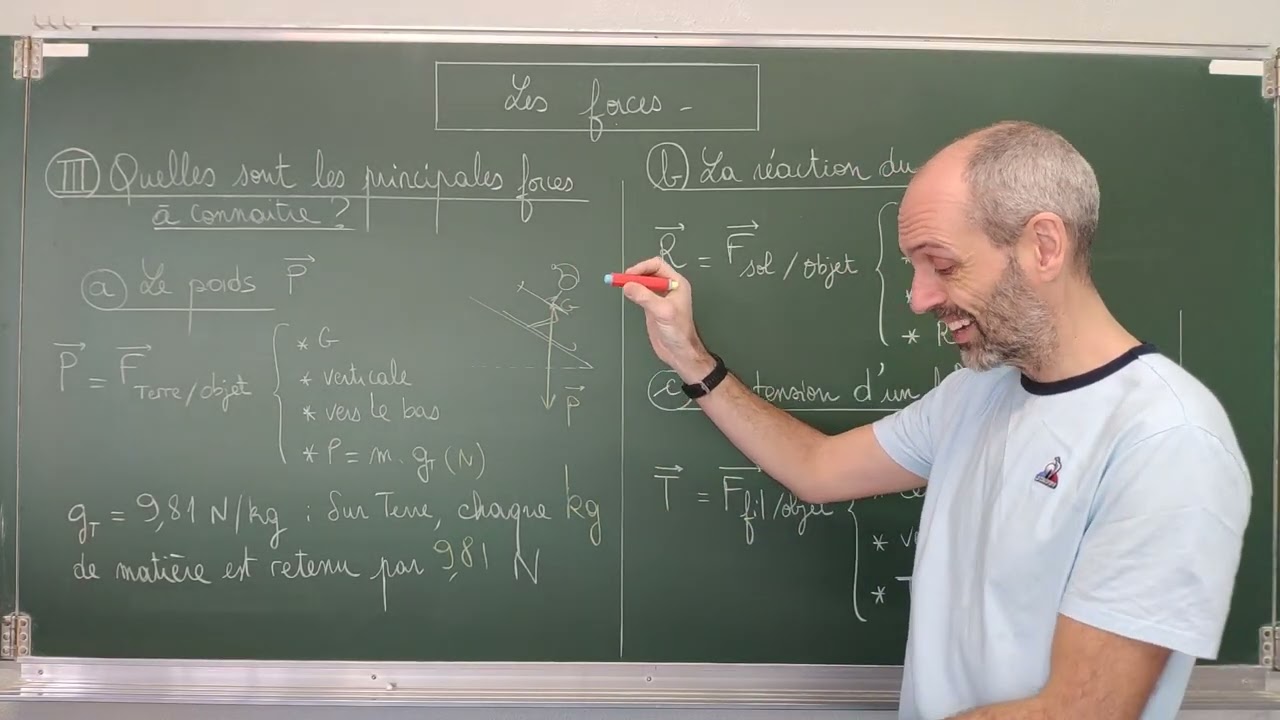 Les forces -
III Quelles sont les principales forces
à connaitre ?
a Le poids P
P = F Terre/objet
* G
* verticale
* vers le bas
* P = m. gT (N)
G
P
gT = 9,81 N/kg : Sur Terre, chaque kg
de matière est retenu par 9,81 N
b La réaction du
R = F sol/objet
*
*
* R
c tension d'un
T = F fil/objet
*
*